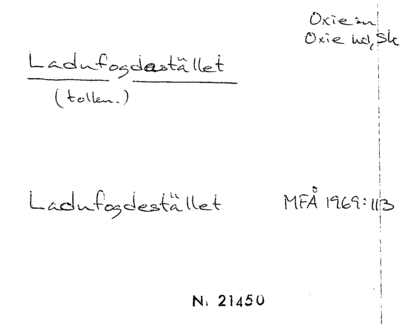 Oxie sn
Oxie hd, Sk
Ladufogdestället
(tollen.)
Ladufogdestället MFÅ 1969:113
N: 21450